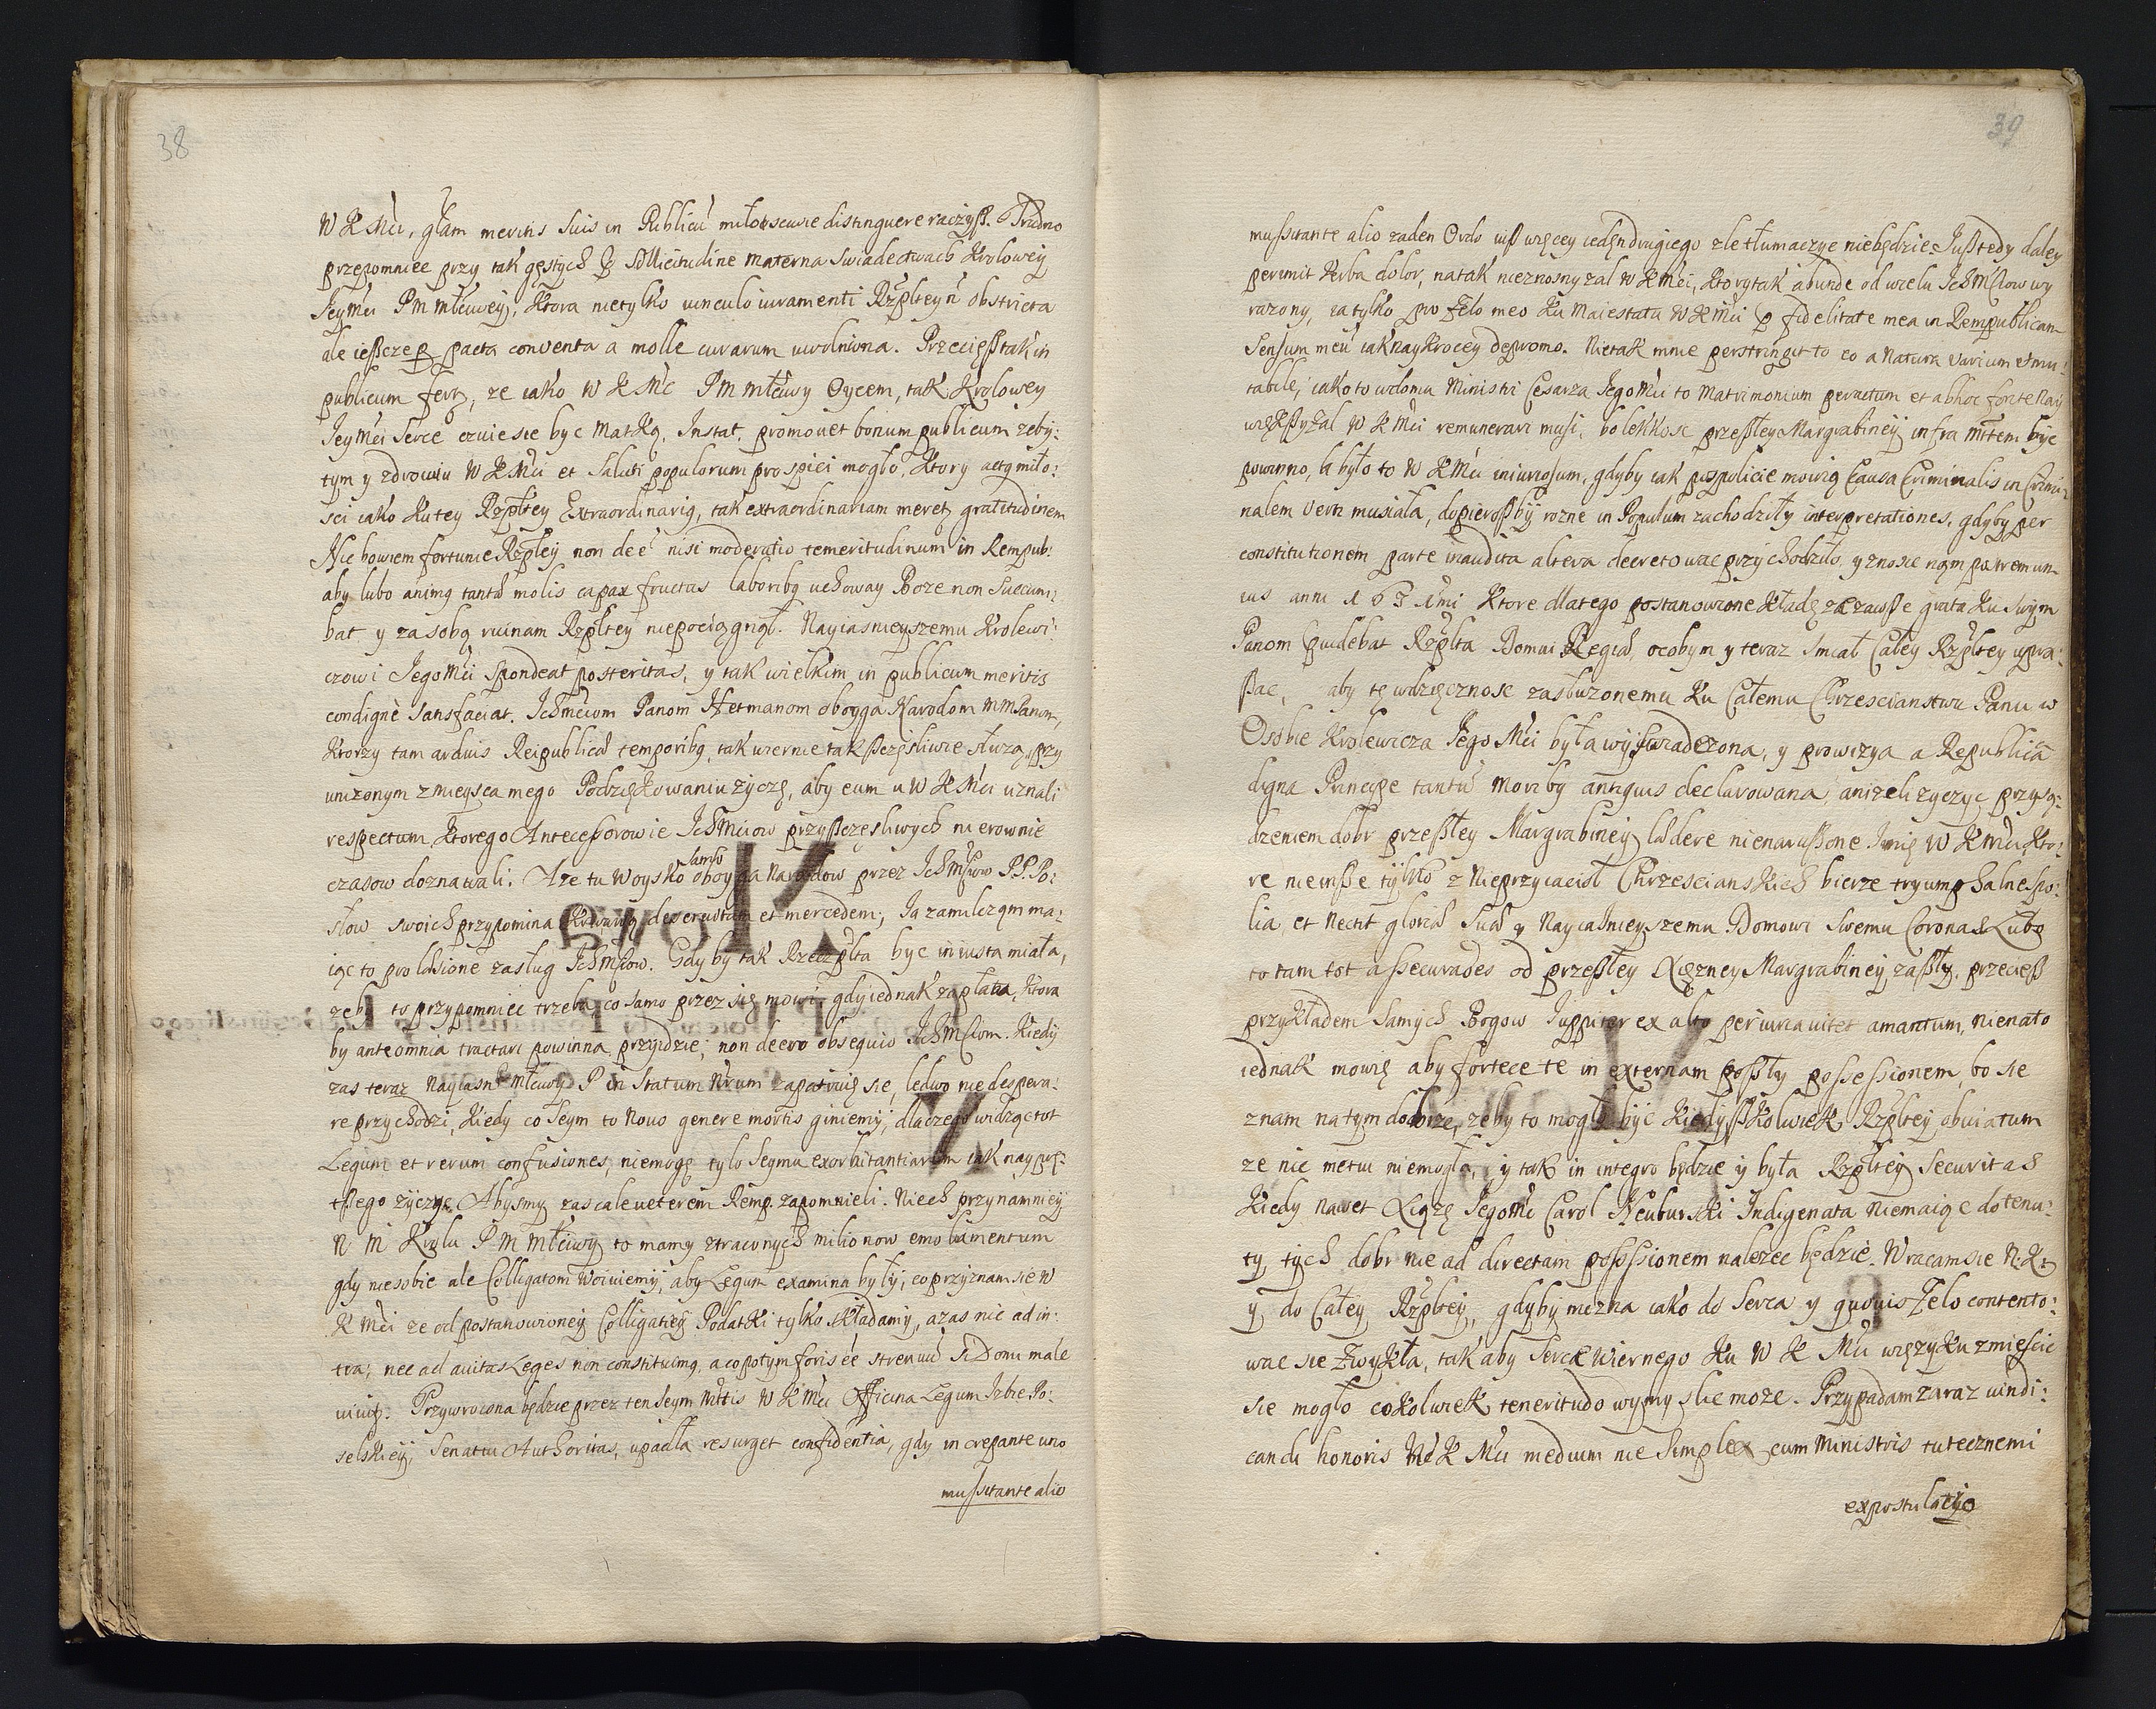 38
W K Mći, głam meritis suis in Publicũ miłosciwie distinguere raczyß. Trudno
przepomniec przy tak gęstych sollicitudine materna swiadectwach Krolowey
Jeymći P m młćiwey, Ktora nietylko vinculo iuramenti Rzpltey obstricta
ale ießcze p pacta conventa a molle curarum uwolniona. Przecięß tak in
publicum fert, ze iako W K Mć P m młćiwy Oycem, tak Krolowey
Jeymći serce czuie sie byc Matką. Instat, promovet bonum publicum zeby:
tym y zdrowiu W K Mći et saluti populorum prospici mogło, Ktory actą miło:
sci iako Ku tey Rzpltey Extraordinarią, tak extraordinariam meret gratitudinem
Nic bowiem fortunie Rzpltey non deē nisi moderatio temeritudinum in Rempub:
aby lubo animą tantæ molis capax fructus laboribq uchoway Boze non succum:
bat y za sobą ruinam Rzpltey niepociągnął. Nayiasnieyszemu Krolewi:
czowi Jego Mći spondeat posteritas, y tak wielkim in publicum meritis
condignè satisfaciat. Ichmćiom Panom Hetmanom oboyga Narodom m m Panom,
Ktorzy tam arduis Reipublicæ temporibq, tak wiernie tak ßczęsliwie służą, przy
unizonym z mieysca mego Podziękowaniu życzę, aby eum u W K Mći uznali
respectum, Ktorego Antecessorowie Ichmćiow przyßczęsliwych nierownie
samo
czasow doznawali. A ze tu Woysko oboyga Narodow przez Ichmćiow P.P. Po:
słow swoich przypomina et mercedem, Ja zamilczę ma:
iąc to pro læsione zasług Ichmćiow. Gdyby tak Rzeczplta byc iniusta miała,
zeby to przypomniec trzeba, co samo przez się mowi, gdy iednak zapłata, Ktora
by ante omnia tractari powinna przyidzie, non deero obsequio Ichmćiom. Kiedy
zas teraz nayiasn: młćiwy P in statum nrum zapatruię sie, ledwo nie despera:
re przychodzi, Kiedy co Seym to novo genere mortis giniemy, dlaczego widząc tot
Legum et rerum confusiones, niemogę tylo Seymu exorbitantiarum iak nayprę:
tßego życzyc. Abysmy zas cale veterem Remp. zapomnieli. Niech przynamniey
N M Krolu P m młćiwy to mamy ztraconych milionow emolumentum
gdy nie sobie ale Colligatom woiuiemy, aby Legum examina były, co przyznam sie W
K Mći ze od postanowioney Colligatiey Podatki tylko składamy, a zas nic ad in:
tra, nec ad avitas Leges non constituimq, a co potym foris eē strenuũ si Domi male
vivitᵣ. Przywrocona będzie przez ten Seym W K Mći Officina Legum Izbie Po:
selskiey, Senatui Authoritas, upadła resurget confidentia, gdy in crepante uno
mussitante alio

39
mussitante alio zaden Ordo iuß więcey ieden drugiego zle tłumaczyc niebędzie. Juß tedy daley
perimit verba dolor, na tak nieznosny zal W K Mći, Ktory tak abunde od wielu Ichmćiow wy
razony, ia tylko pro zelo meo Ku Maiestatu W K Mći p fidelitate mea in Rempublicam
Sensum meũ iak naykrocey depromo. Nie tak mnie perstringit to co a natura varium et mu:
tabile, iako to wdomu Ministri Cesarza Jego Mći to Matrimonium peractum et ab hoc forte nay
więkßy żal W K Mći remunerari musi, bo lekkosc przeßłey Margrabiney infra mitem byc
powinno, by było to W K Mći iniuriosum, gdyby iak pospolicie mowią Causa Criminalis in Crimi:
nalem verti musiała, dopieroßby rozne in Populum zachodziły interpretationes, gdyby per
constitutionem parte inaudita altera decretowac przychodziło, y znosic nam patremum
ius anni 1631mi Ktore dlatego postanowione Kładę ze zawße grata Ku swym
Panom studebat Rzplta Domui Regiæ, o co bym y teraz smiał Całey Rzpltey upra:
ßac, aby tę wdzięcznosc zasłuzonemu Ku Całemu Chrzescianstwu Panu w
Osobie Krolewicza Jego Mći była wyswiadczona, y prowizya a Republicã
digna Principe tantiſ moribq antiquis declarowana, anizeli zyczyc przysą:
dzeniem dobr przeßłey Margrabiney lædere nienarußone Imię W K Mći, Kto:
re nieinße tylko z Nieprzyiacioł Chrzescianskich bierze tryumphalne spo:
lia, et nectit gloriæ suæ y Nayiasnieyszemu Domowi Swemu Coronas. Lubo
to tam tot assecuratoes od przeßłey Xiężney Margrabiney zaßły, przecięß
przykładem samych Bogow Juppiter ex alto periuria videt amantum, nie na to
iednak mowię aby fortece te in externam poßły possessionem, bo sie
znam na tym dobrze, zeby to mogło byc Kiedyßkolwiek Rzpltey obviatum
ze nic metui niemogła, y tak in integro będzie y była Rzpltey Securitas
Kiedy nawet Xiążę Jegomć Carol Neuburski Indigenata niemaiąc do tenu:
ty tych dobr nie ad directam possessionem nalezec będzie. Wracam sie N: K:
y do Całey Rzpltey, gdyby mozna iako do Serca y quovis zelo contento:
wac sie zwykła, tak aby Serce Wiernego Ku W K Mći w ięzyku zmiescic
sie mogło cokolwiek teneritudo wymyslic moze. Przypadam zaraz vindi:
candi honoris W K Mći medium nie simplex cum Ministris tutecznemi
expostulatyo